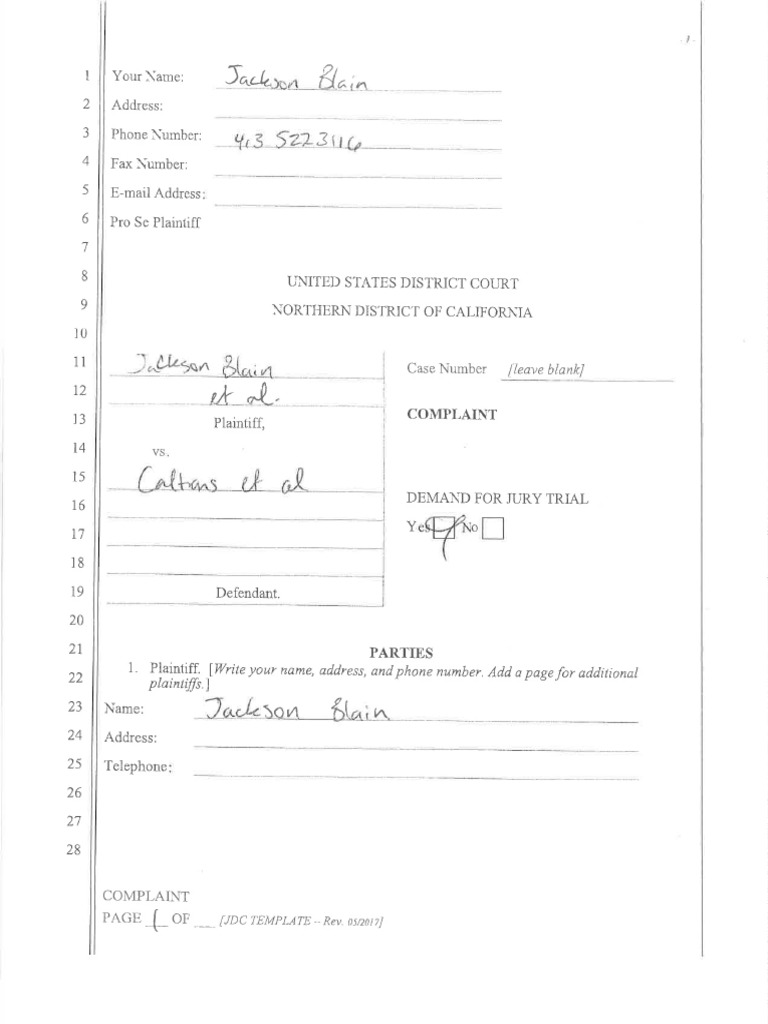 - 1 -
1 Your Name: Jackson Blain
2 Address:
3 Phone Number: 413 5223116
4 Fax Number:
5 E-mail Address:
6 Pro Se Plaintiff
7
8 UNITED STATES DISTRICT COURT
9 NORTHERN DISTRICT OF CALIFORNIA
10
11 Jackson Blain Case Number [leave blank]
12 et al.
13 Plaintiff, COMPLAINT
14 vs.
15 Caltrans et al
16 DEMAND FOR JURY TRIAL
17 Yes No
18
19 Defendant.
20
21 PARTIES
1. Plaintiff. [Write your name, address, and phone number. Add a page for additional
22 plaintiffs.]
23 Name: Jackson Blain
24 Address:
25 Telephone:
26
27
28
COMPLAINT
PAGE 1 OF ___ [JDC TEMPLATE -- Rev. 05/2017]